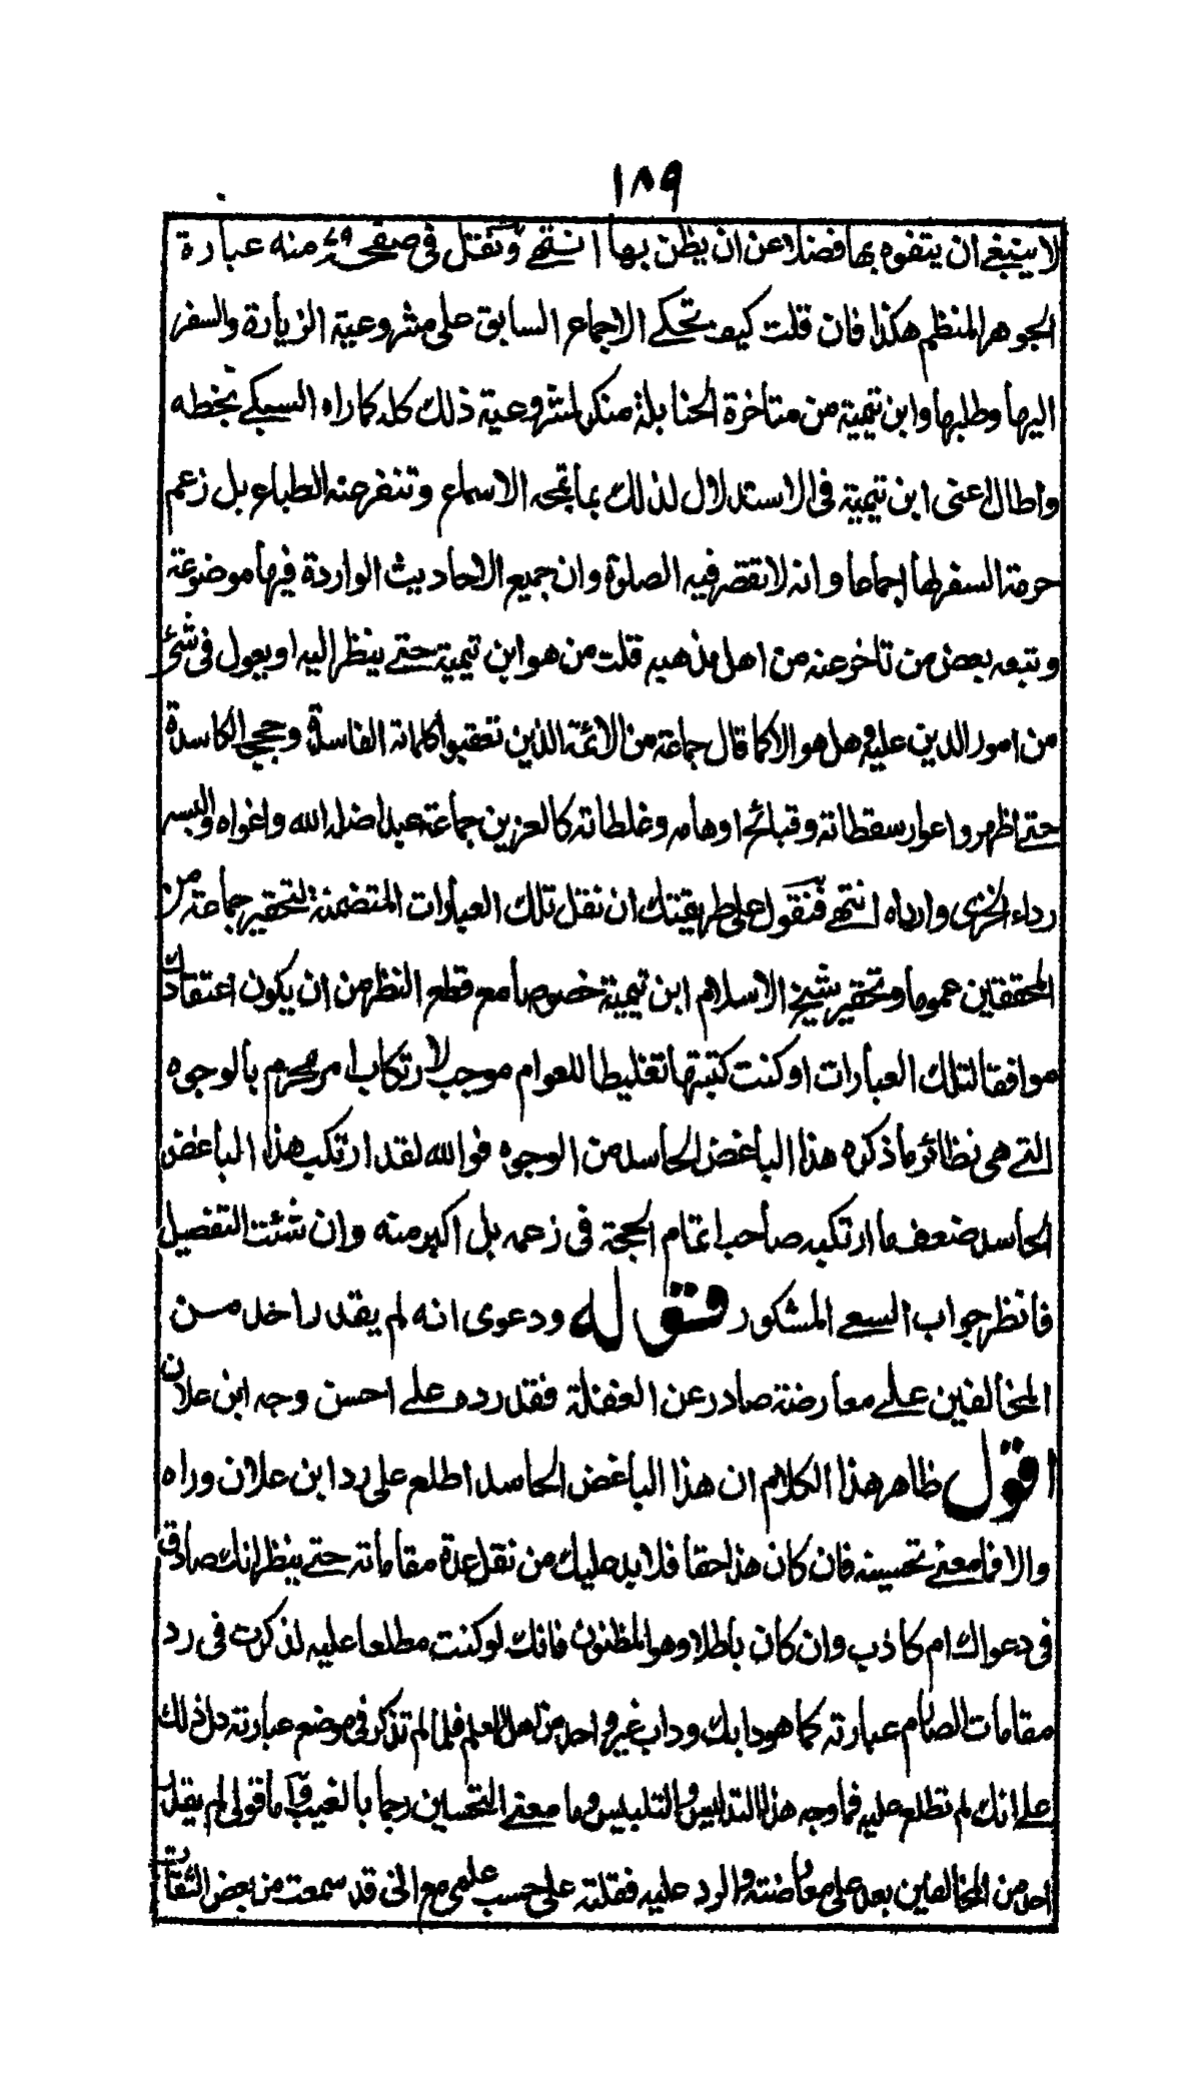 ١٨٩
لا ينبغي ان يتفوه بها فضلا عن ان يظن بها انتهى ونقل في صفحه منه عبارة
الجوهر المنظم هكذا فان قلت كيف تحكي الاجماع السابق على مشروعية الزيارة والسفر
اليها وطلبها وابن تيمية من متاخرة الحنابلة منكر لمشروعية ذلك كله كما راه السبكي بخطه
واطال اعنى ابن تيمية في الاستدلال لذلك بما تمجه الاسماع وتنفر عنه الطباع بل زعم
حرمة السفر لها اجماعا وانه لا تقصر فيه الصلوة وان جميع الاحاديث الواردة فيها موضوعة
وتبعه بعض من تاخر عنه من اهل مذهبه قلت من هو ابن تيمية حتى ينظر اليه او يعول في شئ
من امور الدين عليه وهل هو الا كما قال جماعة من الائمة الذين تعقبوا كلماته الفاسدة وحججه الكاسدة
حتى اظهروا عوار سقطاته وقبائح اوهامه وغلطاته كالعز بن جماعة عبد اضله الله واغواه والبسه
رداء الخزى وارداه انتهى فنقول على طريقتك ان نقل تلك العبارات المتضمنة لتحقير جماعة من
المحققين عموما وتحقير شيخ الاسلام ابن تيمية خصوصا مع قطع النظر من ان يكون اعتقادك
موافقا لتلك العبارات او كنت كتبتها تغليطا للعوام موجب لارتكاب امر محرم بالوجوه
التي هي نظائر ما ذكره هذا الباغض الحاسد من الوجوه فوالله لقد ارتكب هذا الباغض
الحاسد ضعف ما ارتكبه صاحب اتمام الحجة في زعمه بل اكبر منه وان شئت التفصيل
فانظر جواب السعي المشكور قوله ودعوى انه لم يقدر احد من
المخالفين على معارضته صادر عن الغفلة فقد رده على احسن وجه ابن علان
اقول ظاهر هذا الكلام ان هذا الباغض الحاسد اطلع على رد ابن علان وراه
والا فما معنى تحسينه فان كان هذا حقا فلا بد عليك من نقل عدة مقاماته حتى ينظر انك صادق
في دعواك ام كاذب وان كان باطلا وهو المظنون فانك لو كنت مطلعا عليه لذكرت في رد
مقامات الصارم عبارته كما هو دابك وداب غير واحد من اهل العلم فلما لم تذكر في موضع عبارته دل ذلك
على انك لم تطلع عليه فما وجه هذا التدليس والتلبيس وما معنى التحسين رجما بالغيب واما قولى لم يقدر
احد من المخالفين بعد على معارضته والرد عليه فقلته على حسب علمى مع انى قد سمعت من بعض الثقات